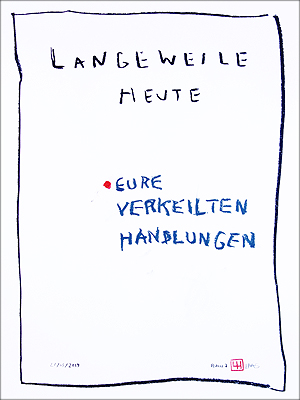 LANGEWEILE
HEUTE
EURE
VERKEILTEN
HANDLUNGEN